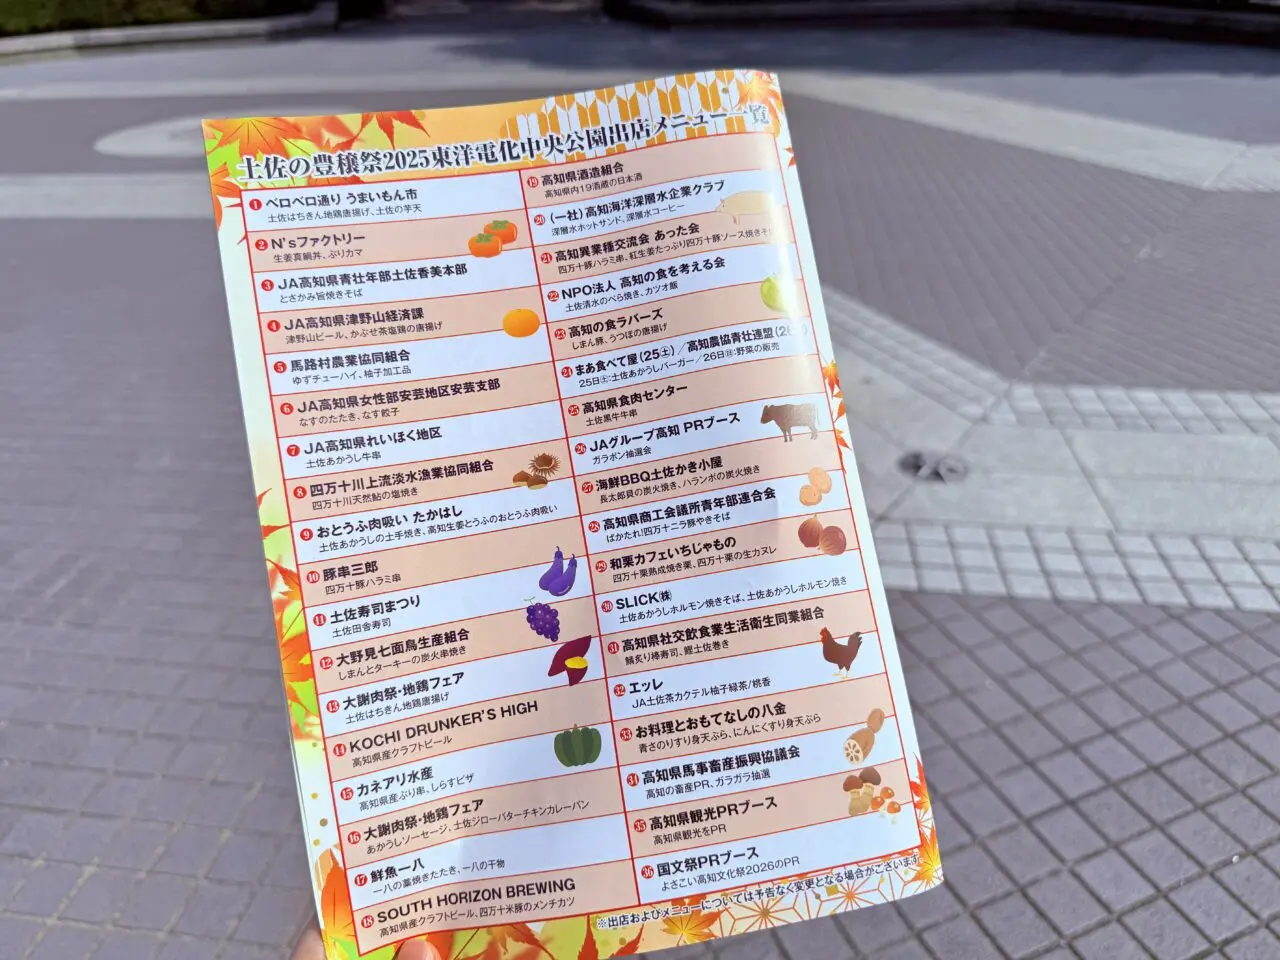 土佐の豊穣祭2025東洋電化中央公園出店メニュー一覧
1 ペロペロ通り うまいもん市
土佐はちきん地鶏唐揚げ、土佐の芋天
2 N'sファクトリー
生姜真鯛丼、ぶりカマ
3 JA高知県青壮年部土佐香美本部
とさかみ旨焼きそば
4 JA高知県津野山経済課
津野山ビール、かぶせ茶塩鶏の唐揚げ
5 馬路村農業協同組合
ゆずチューハイ、柚子加工品
6 JA高知県女性部安芸地区安芸支部
なすのたたき、なす餃子
7 JA高知県れいほく地区
土佐あかうし牛串
8 四万十川上流淡水漁業協同組合
四万十川天然鮎の塩焼き
9 おとうふ肉吸い たかはし
土佐あかうしの土手焼き、高知生姜とうふのおとうふ肉吸い
10 豚串三郎
四万十豚ハラミ串
11 土佐寿司まつり
土佐田舎寿司
12 大野見七面鳥生産組合
しまんとターキーの炭火串焼き
13 大謝肉祭・地鶏フェア
土佐はちきん地鶏唐揚げ
14 KOCHI DRUNKER'S HIGH
高知県産クラフトビール
15 カネアリ水産
高知県産ぶり串、しらすピザ
16 大謝肉祭・地鶏フェア
あかうしソーセージ、土佐ジローバターチキンカレーパン
17 鮮魚一八
一八の藁焼きたたき、一八の干物
18 SOUTH HORIZON BREWING
高知県産クラフトビール、四万十米豚のメンチカツ
19 高知県酒造組合
高知県内19酒蔵の日本酒
20 (一社)高知海洋深層水企業クラブ
深層水ホットサンド、深層水コーヒー
21 高知異業種交流会 あった会
四万十豚ハラミ串、紅生姜たっぷり四万十豚ソース焼きそば
22 NPO法人 高知の食を考える会
土佐清水のぺら焼き、カツオ飯
23 高知の食ラバーズ
しまん豚、うつぼの唐揚げ
24 まあ食べて屋(25㊏)/高知農協青壮連盟(26㊐)
25日㊏:土佐あかうしバーガー/26日㊐:野菜の販売
25 高知県食肉センター
土佐黒牛牛串
26 JAグループ高知 PRブース
ガラポン抽選会
27 海鮮BBQ土佐かき小屋
長太郎貝の炭火焼き、ハランボの炭火焼き
28 高知県商工会議所青年部連合会
ばかたれ!四万十ニラ豚やきそば
29 和栗カフェいちじゃもの
四万十栗熟成焼き栗、四万十栗の生カヌレ
30 SLICK㈱
土佐あかうしホルモン焼きそば、土佐あかうしホルモン焼き
31 高知県社交飲食業生活衛生同業組合
鯖炙り棒寿司、鰹土佐巻き
32 エッレ
JA土佐茶カクテル柚子緑茶/桃香
33 お料理とおもてなしの八金
青さのりすり身天ぷら、にんにくすり身天ぷら
34 高知県馬事畜産振興協議会
高知の畜産PR、ガラガラ抽選
35 高知県観光PRブース
高知県観光をPR
36 国文祭PRブース
よさこい高知文化祭2026のPR
※出店およびメニューについては予告なく変更となる場合がございます。